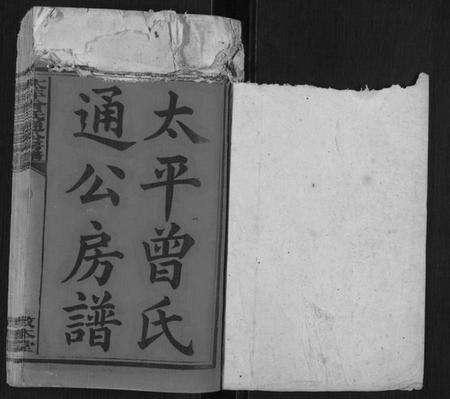 太平曾氏
通公房譜